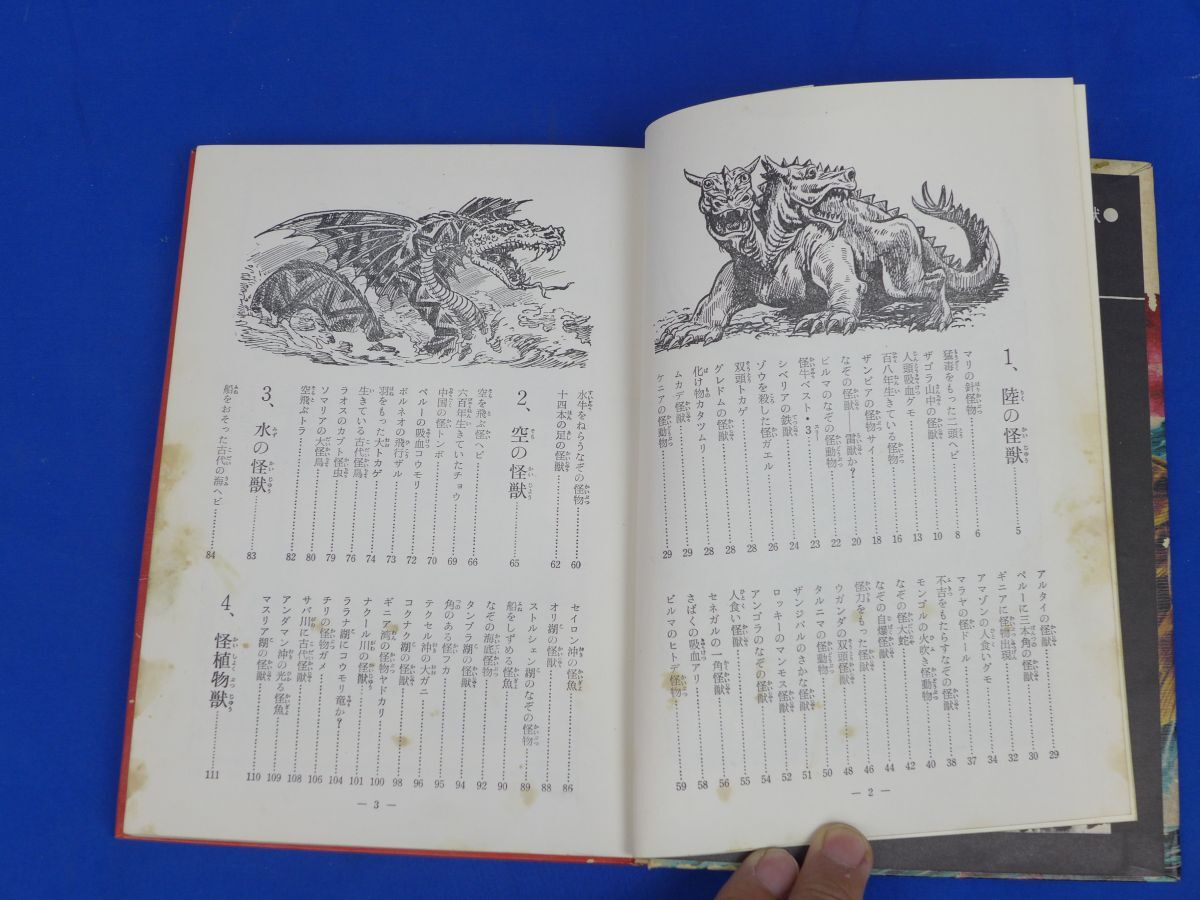 1、陸の怪獣 5
マリの針怪物 6
猛毒をもった二頭ヘビ 8
ザゴラ山中の怪獣 10
人頭吸血グモ 13
百八年生きている怪物 16
ザンビアの怪物サイ 18
なぞの怪獣──雷獣か? 20
ビルマのなぞの怪動物 22
怪牛ベスト・3 23
シベリアの鉄獣 24
ゾウを殺した怪ガエル 26
双頭トカゲ 28
グレドムの怪獣 28
化け物カタツムリ 28
ムカデ怪獣 29
ケニアの怪動物 29
アルタイの怪獣 29
ペルーに三本角の怪獣 30
ギニアに怪物出現 32
アマゾンの人食いダモ 34
マラヤの怪ドール 37
不吉をもたらすなぞの怪獣 38
モンゴルの火吹き怪動物 40
なぞの怪大蛇 42
なぞの自爆怪獣 44
怪力をもった怪獣 46
ウガンダの双頭怪獣 48
タルニマの怪動物 50
ザンジバルのさかな怪獣 51
ロッキーのマンモス怪獣 52
アンゴラのなぞの怪獣 54
人食い怪獣 55
セネガルの一角怪獣 56
さばくの吸血アリ 58
ビルマのヒトデ怪物 59
― 2 ―
水牛をねらうなぞの怪物 60
十四本の足の怪獣 62
2、空の怪獣 65
空を飛ぶ怪ヘビ 66
六百年生きていたチョウ 69
中国の怪トンボ 70
ペルーの吸血コウモリ 70
ボルネオの飛行ザル 72
羽をもった大トカゲ 73
生きている古代怪鳥 74
ラオスのカブト怪虫 76
ソマリアの大怪鳥 79
空飛ぶトラ 80
82
3、水の怪獣 83
船をおそった古代の海ヘビ 84
セイロン沖の怪魚 86
オリ湖の怪獣 88
ストルシェン湖のなぞの怪物 89
船をしずめる怪魚 90
なぞの海底怪物 92
タンブラ湖の怪獣 94
角のある怪フカ 95
テクセル沖の大ガニ 96
コクナク湖の怪獣 98
ギニア湾の怪物ヤドカリ 100
ナクール川の怪獣 101
ララナ湖にコウモリ竜か? 104
チリの怪物ガメ 106
サバ川に古代怪獣 108
アンダマン沖の光る怪魚 109
マスリア湖の怪獣 110
4、怪植物獣 111
― 3 ―